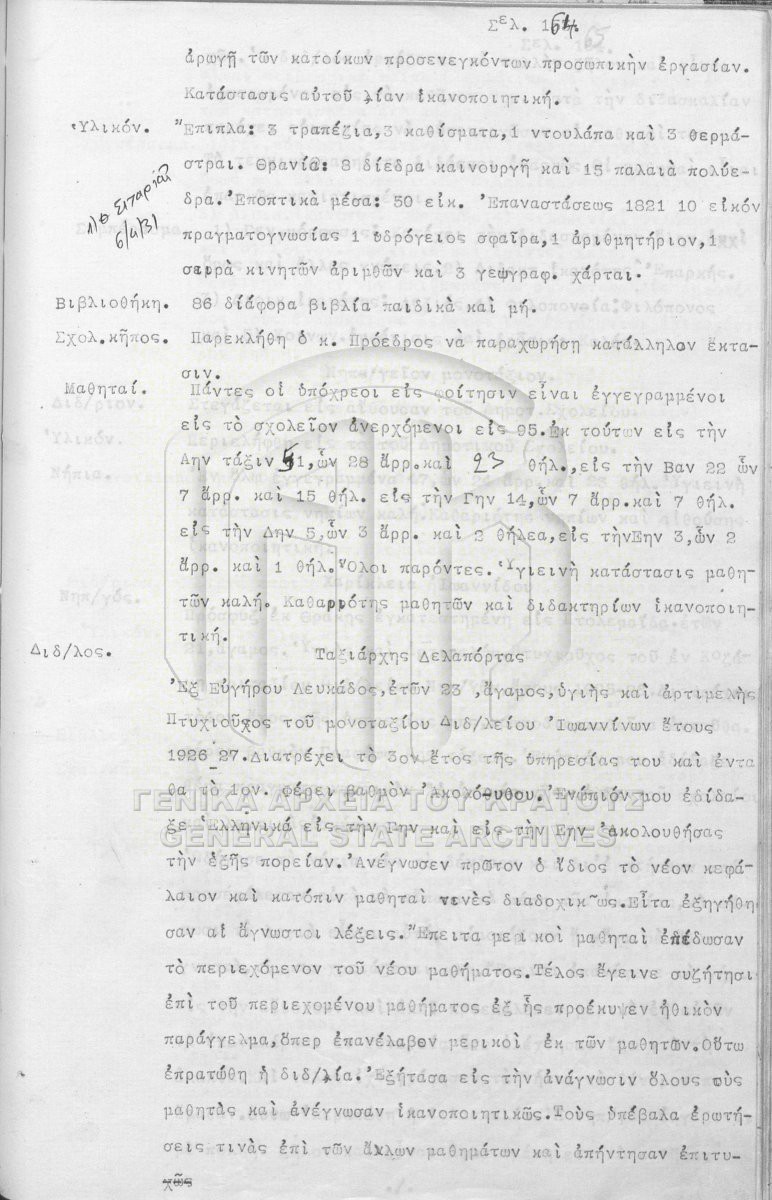 Σελ. 164.
ἀρωγῇ τῶν κατοίκων προσενεγκόντων προσωπικὴν ἐργασίαν.
Κατάστασις αὐτοῦ λίαν ἱκανοποιητική.
Ὑλικόν. Ἔπιπλα: 3 τραπέζια, 3 καθίσματα, 1 ντουλάπα καὶ 3 θερμά-
στραι. Θρανία: 8 δίεδρα καινουργῆ καὶ 15 παλαιὰ πολύε-
δρα. Ἐποπτικὰ μέσα: 30 εἰκ. Ἐπαναστάσεως 1821 10 εἰκόν
πραγματογνωσίας 1 ὑδρόγειος σφαῖρα, 1 ἀριθμητήριον, 1
σειρὰ κινητῶν ἀριμθῶν καὶ 3 γεωγραφ. χάρται.
6/4/31
Βιβλιοθήκη. 86 διάφορα βιβλία παιδικὰ καὶ μή.
Σχολ.κῆπος. Παρεκλήθη ὁ κ. Πρόεδρος νὰ παραχωρήσῃ κατάλληλον ἔκτα-
σιν.
Μαθηταί. Πάντες οἱ ὑπόχρεοι εἰς φοίτησιν εἶναι ἐγγεγραμμένοι
εἰς τὸ σχολεῖον ἀνερχόμενοι εἰς 95. Ἐκ τούτων εἰς τὴν
Αην τάξιν 51, ὧν 28 ἄρρ. καὶ 23 θήλ., εἰς τὴν Βαν 22 ὧν
7 ἄρρ. καὶ 15 θήλ. εἰς τὴν Γην 14, ὧν 7 ἄρρ. καὶ 7 θήλ.
εἰς τὴν Δην 5, ὧν 3 ἄρρ. καὶ 2 θήλεα, εἰς τὴνΕην 3, ὧν 2
ἄρρ. καὶ 1 θήλ. Ὅλοι παρόντες. Ὑγιεινὴ κατάστασις μαθη-
τῶν καλή. Καθαρρότης μαθητῶν καὶ διδακτηρίων ἱκανοποιη-
τική.
Διδ/λος. Ταξιάρχης Δελαπόρτας
Ἐξ Εὐγήρου Λευκάδος, ἐτῶν 23, ἄγαμος, ὑγιὴς καὶ ἀρτιμελὴς
Πτυχιοῦχος τοῦ μονοταξίου Διδ/λείου Ἰωαννίνων ἔτους
1926_27. Διατρέχει τὸ 3ον ἔτος τῆς ὑπηρεσίας του καὶ ἐντα
θα τὸ 1ον. φέρει βαθμὸν Ἀκολόθυθου. Ἐνώπιόν μου ἐδίδα-
ξε Ἑλληνικά εἰς τὴν Γην καὶ εἰς τὴν Εην ἀκολουθήσας
τὴν ἑξῆς πορείαν. Ἀνέγνωσεν πρῶτον ὁ ἴδιος τὸ νέον κεφά-
λαιον καὶ κατόπιν μαθηταὶ τινὲς διαδοχικῶς. Εἶτα ἐξηγήθη
σαν αἱ ἄγνωστοι λέξεις. Ἔπειτα μερικοὶ μαθηταὶ ἐπέδωσαν
τὸ περιεχόμενον τοῦ νέου μαθήματος. Τέλος ἔγεινε συζήτησι
ἐπὶ τοῦ περιεχομένου μαθήματος ἐξ ἧς προέκυψεν ἠθικὸν
παράγγελμα, ὅπερ ἐπανέλαβον μερικοὶ ἐκ τῶν μαθητῶν. Οὕτω
ἐπρατώθη ἡ διδ/λία. Ἐξήτασα εἰς τὴν ἀνάγνωσιν ὅλους τοὺς
μαθητὰς καὶ ἀνέγνωσαν ἱκανοποιητικῶς. Τοὺς ὑπέβαλα ἐρωτή-
σεις τινὰς ἐπὶ τῶν ἄλλων μαθημάτων καὶ ἀπήντησαν ἐπιτυ-
χῶς
ΓΕΝΙΚΑ ΑΡΧΕΙΑ ΤΟΥ ΚΡΑΤΟΥΣ
GENERAL STATE ARCHIVES